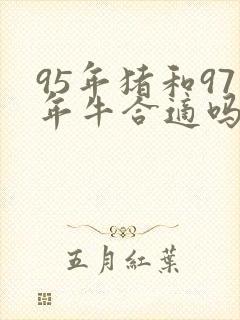 95年猪和97
年牛合適吗
五月紅葉